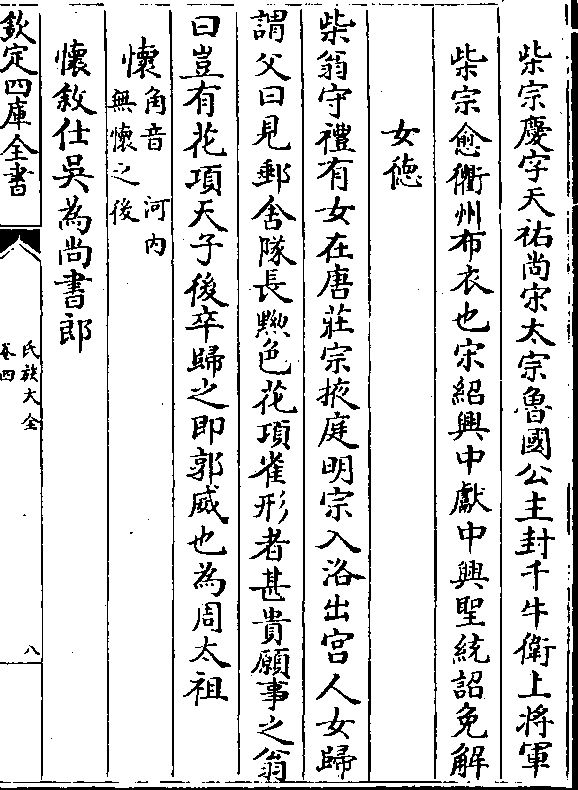 柴宗慶字天祐尚宋太宗魯國公主封千牛衛上將軍
柴宗愈衢州布衣也宋紹興中獻中興聖統詔免解
女徳
柴翁守禮有女在唐莊宗掖庭明宗入洛出宫人女歸
謂父曰見郵舍隊長黝色花項雀形者甚貴願事之翁
曰豈有花項天子後卒歸之即郭威也為周太祖
懷
角音 河内
無懷之後
懷敘仕吳為尚書郎
欽定四庫全書
氏族大全
卷四
八